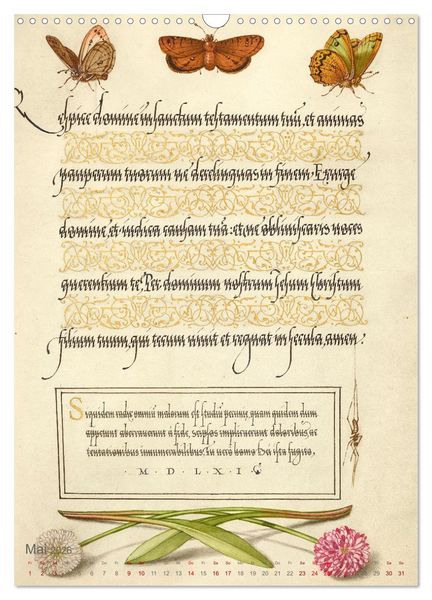 Respice domine in sanctum testamentum tuū, et animas
pauperum tuorum ne derelinquas in finem. Exurge
domine, et iudica causam tuā: et ne obliviscaris voces
querentium te. Per dominum nostrum Jesum Christum
filium tuum, qui tecum vivit et regnat in secula, amen.
Siquidem radix omniū malorum est studiū pecuniæ, quam quidem dum
appetunt aberraverunt à fide, seipsos implicuerunt doloribus, ac
tentationibus innumerabilibus. Tu vero homo Dei ista fugito.
· M · D · L · X · I ·
Mai 2026
1 2 3 4 5 6 7 8 9 10 11 12 13 14 15 16 17 18 19 20 21 22 23 24 25 26 27 28 29 30 31